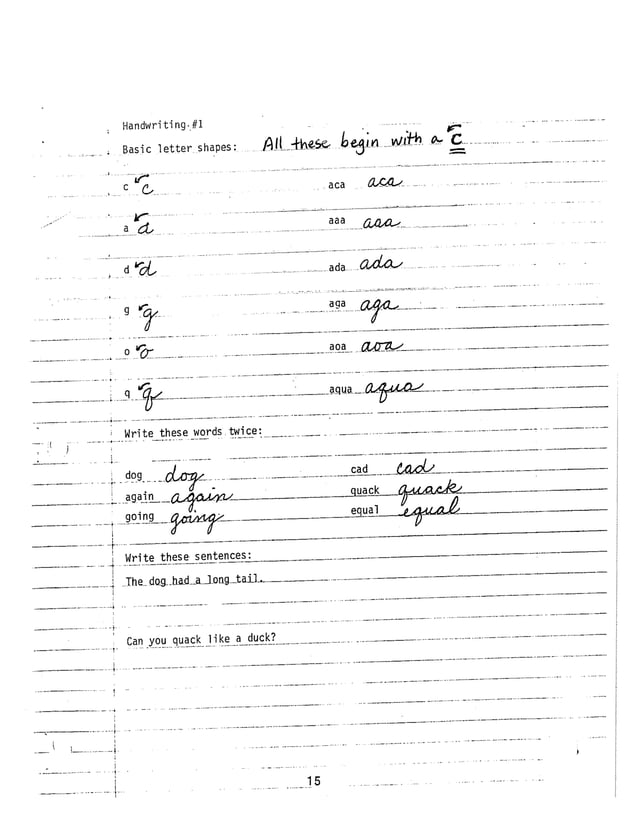 Handwriting #1
Basic letter shapes: All these begin with a c
c c aca aca
a a aaa aaa
d d ada ada
g g aga aga
o o aoa aoa
q q aqua aqua
Write these words twice:
dog dog cad cad
again again quack quack
going going equal equal
Write these sentences:
The dog had a long tail.
Can you quack like a duck?
15